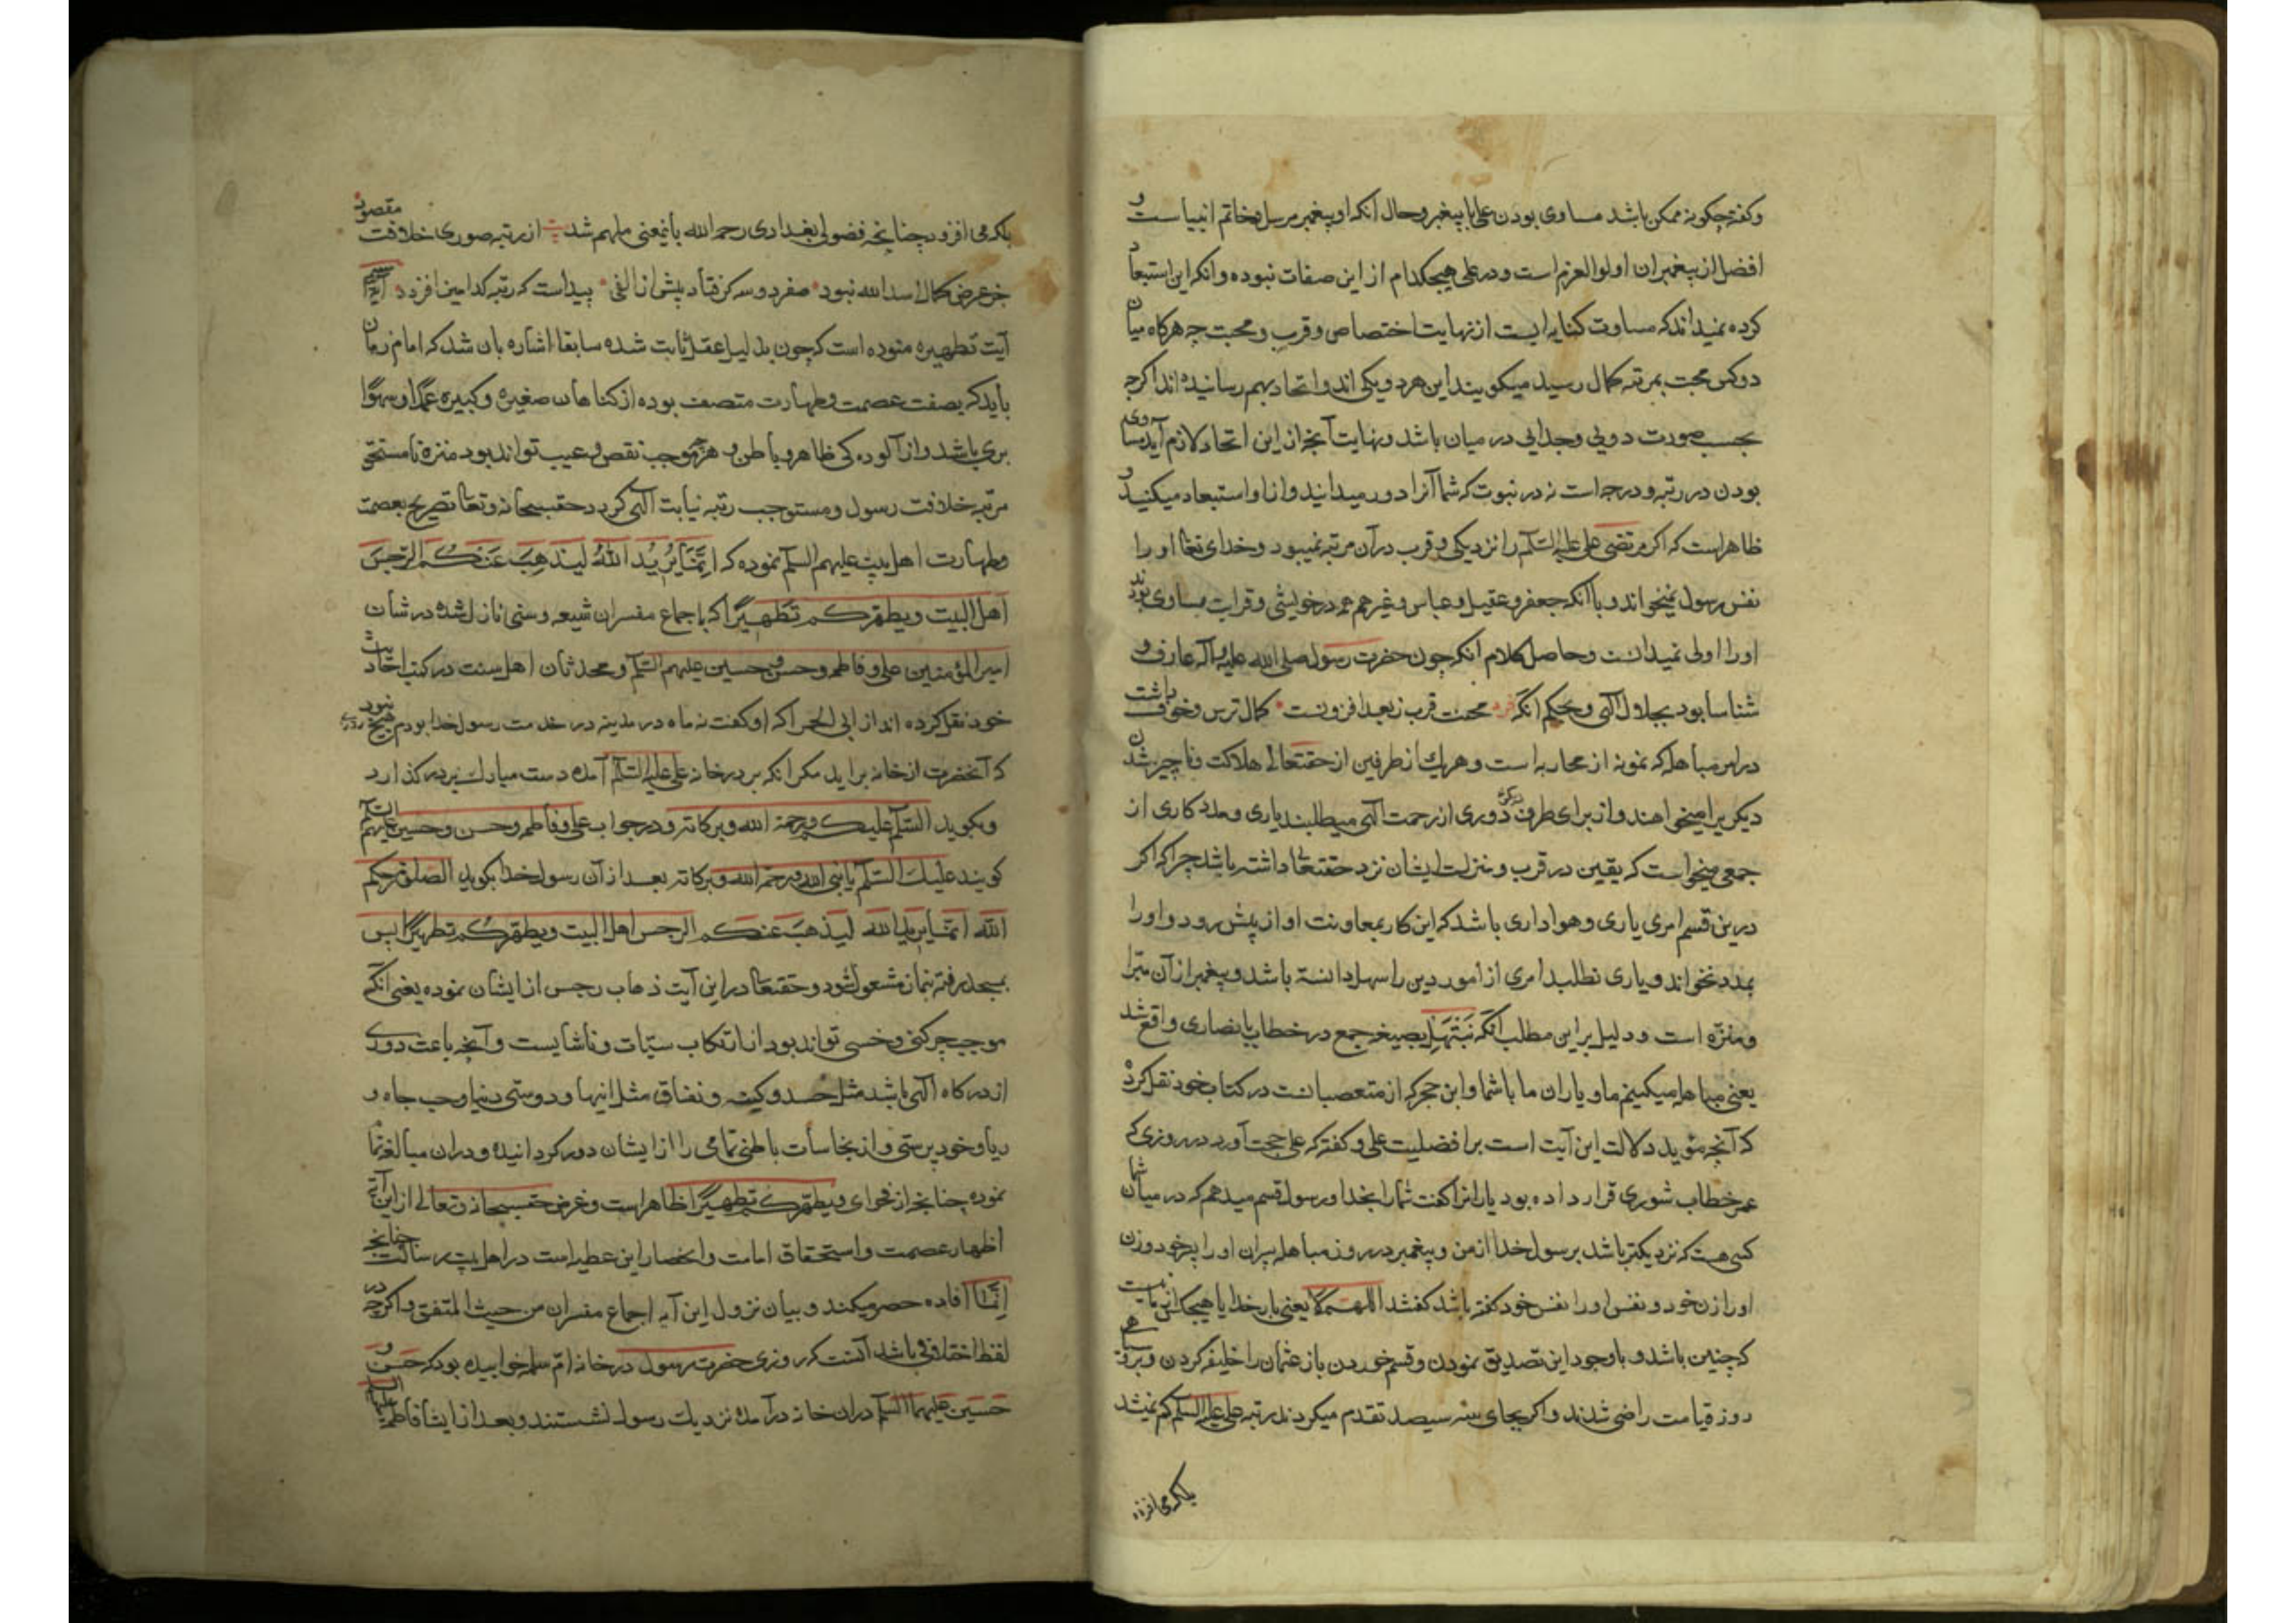 و کفته چکونه ممکن باشد مساوی بودن علی با پیغمبر و حال آنکه او پیغمبر مرسل و خاتم انبیاست و
افضل از پیغمبران اولوالعزم است و در علی هیچکدام از این صفات نبوده و آنکه این استبعاد
کرده نمیداند که مساوت کنایه ایست از نهایت اختصاص و قرب و محبت چه هرکاه میان
دو کس محبت بمرتبه کمال رسید میکویند این هر دو یکی اند و اتحاد بهم رسانیده اند اکرچه
بحسب صورت دویی و جدایی در میان باشد و نهایت آنچه از این اتحاد لازم آید مساوی
بودن در رتبه و درجه است نه در نبوت که شما آنرا دور میدانید و از او استبعاد میکنید و
ظاهر است که اکر مرتضی علی علیه السلم را نزدیکی و قرب در آن مرتبه نمیبود و خدای تعا او را
نفس رسول نمیخواند و با آنکه جعفر و عقیل و عباس و غیرهم همه در خویشی و قرابت مساوی بودند
او را اولی نمیدانست و حاصل کلام آنکه چون حضرت رسول صلی الله علیه و آله عارف و
شناسا بود بجلال الهی و بحکم آنکه فرد محنت قرب ز بعد افزونست کمال ترس و خوف داشت
در امر مباهله که نمونه از محاربه است و هریک از طرفین از حقتعالی هلاکت و ناچیز شدن
دیکریرا میخواهند و از برای طرف دیکر دوری از رحمت الهی میطلبند یاری و مددکاری از
جمعی میخواست که یقین در قرب و منزلت ایشان نزد حقتعا داشته باشد چرا که اکر
درین قسم امری یاری و هواداری باشد که این کار بمعاونت او از پیش رود و او را
بمدد نخواند و یاری نطلبد امری از امور دین را سهل دانسته باشد و پیغمبر از آن مبرا
و منزه است و دلیل بر این مطلب آنکه نبتهل بصیغه جمع در خطاب با نصاری واقع شد
یعنی مباهله میکنیم ما و یاران ما با شما و ابن حجر که از متعصبانست در کتاب خود نقل کرده
که آنچه مؤید دلالت این آیت است بر افضلیت علی و کفته که علی حجت آورد در روزی که
عمر خطاب شوری قرار داده بود یارانرا کفت شما را بخدا و رسول قسم میدهم که در میان شما
کسی هست که نزدیکتر باشد برسول خدا از من و پیغمبر در روز مباهله پسران او را پسر خود و زن
او را زن خود و نفس او را نفس خود کفته باشد کفتند اللهم لا یعنی بار خدایا هیچکس از ما نیست
که چنین باشد و با وجود این تصدیق نمودن و قسم خوردن باز عثمان را خلیفه کردن و
روز قیامت راضی شدند و اکر بجای سه سیصد تقدم میکردند رتبه علی علیه السلم کم نمیشد
بلکه می افزود
بلکه می افزود چنانچه فضولی بغدادی رحمه الله باینمعنی ملهم شد از رتبه صوری خلافت مقصود
جز عرض کمال اسد الله نبود صفر دو سه کر فتاد پیش از الفی پیداست که رتبه کدامین افزود
آیت تطهیره منوده است که چون بدلیل عقل ثابت شده سابقا اشاره بان شد که امام زمان
باید که بصفت عصمت و طهارت متصف بوده از کناهان صغیره و کبیره عمدا و سهوا
بری باشد و از آلوده کی ظاهر و باطن و هرچه موجب نقص و عیب تواند بود منزه تا مستحق
مرتبه خلافت رسول و مستوجب رتبه نیابت الهی کردد حقسبحانه و تعا تصریح بعصمت
و طهارت اهل بیت علیهم السلم نموده که اِنَّمَا یُرِیدُ اللهُ لِیُذْهِبَ عَنْکُمُ الرِّجْسَ
اَهْلَ البیت ویطهرکم تطهیرا که باجماع مفسران شیعه و سنی نازل شده در شأن
امیر المؤمنین علی و فاطمه و حسن و حسین علیهم السلم و محدثان اهل سنت در کتب احادیث
خود نقل کرده اند از ابی الحمرا که او کفت نه ماه در مدینه در خدمت رسول خدا بودم هیچ روزی نبود
که آنحضرت از خانه براید مکر آنکه بر در خانه علی علیه السلم آمده دست مبارک بر در کذارد
و بکوید السلم علیک و رحمة الله و برکاته و در جواب علی و فاطمه و حسن و حسین علیهم السلم
کویند علیک السلم یا نبی الله و رحمة الله و برکاته بعد از آن رسول خدا بکوید الصلوة رحمکم
الله انما یرید الله لیذهب عنکم الرجس اهل البیت ویطهرکم تطهیرا پس
بمسجد رفته بنماز مشغول شود و حقتعا در این آیت ذهاب رجس از ایشان نموده یعنی آنکه
موجب چرکنی و خسی تواند بود از ارتکاب سیّات و ناشایست و آنچه باعث دوری
از درکاه الهی باشد مثل حسد و کینه و نفاق مثل اینها و دوستی دنیا و حب جاه و
ریا و خودپرستی و از نجاسات باطنی تمامی را از ایشان دور کردانیده و در ان مبالغه تمام
نموده چنانچه از فحوای ویطهرکم تطهیرا ظاهر است و غرض حقسبحانه و تعالی از این آیه
اظهار عصمت و استحقاق امامت و انحصار این عطیه است در اهل بیت رسالت چنانچه
اِنَّمَا افاده حصر میکند و بیان نزول این آیه اجماع مفسران من حیث المتفق و اکرچه در
لفظ اختلافی باشد آنست که روزی حضرت رسول در خانه امّ سلمه خوابیده بود که حسن و
حسین علیهما السلم در ان خانه در آمده نزدیک رسول نشستند و بعد از ایشان فاطمه علیها السلم